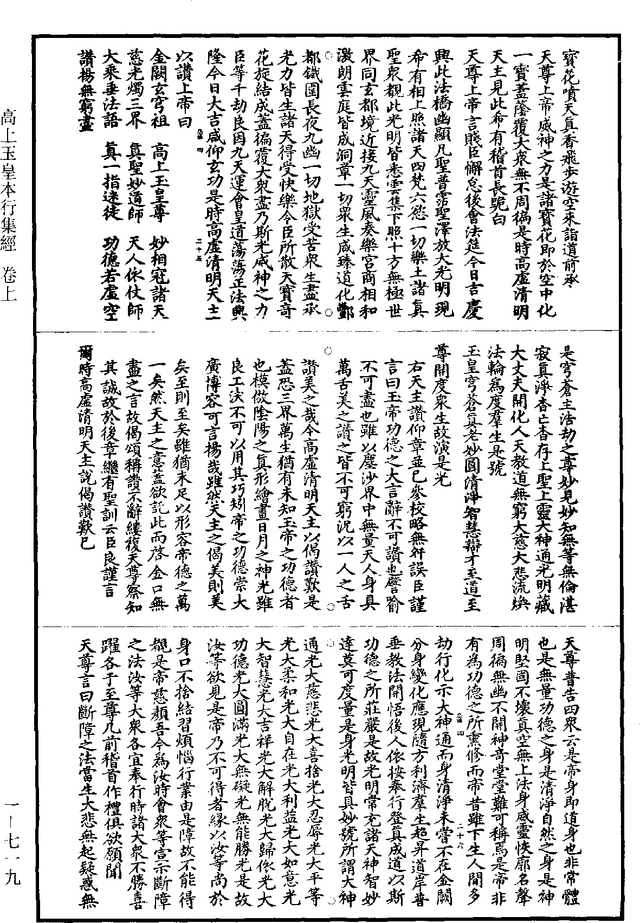 高上玉皇本行集經 卷上
寶花噴天真香飛步遊空來詣道前承
天尊上帝威神之力是諸寶花即於空中化
一寶蓋蔭覆大衆無不周徧是時高虛清明
天主見此希有稽首長跪白
天尊上帝言賤臣懈怠後會法筵今日吉慶
興此法橋幽顯凡聖普霑聖澤放大光明現
希有相上照諸天四梵六慾一切樂土諸真
聖衆覩此光明皆悉雲集下照十方無極世
界同玄都境近接九天靈風奏樂宮商相和
激朗雲庭皆成洞章一切衆生咸臻道化酆
都鐵圍長夜九幽一切地獄受苦衆生盡承
光力皆生諸天得受快樂令臣所散天寶奇
花旋結成蓋徧覆大衆盡乃斯光威神之力
臣等千劫良因九天運會皇道蕩蕩正法興
隆今日大吉咸仰玄功是時高虛清明天主
以讚上帝曰
金闕玄穹祖 高上玉皇尊 妙相冠諸天
慈光燭三界 真聖妙道師 天人依仗師
大乘垂法語 真一指迷徒 功德若虛空
讚揚無窮盡
是穹蒼主浩劫之尊妙見妙知無等無倫湛
寂真淨杳亡杳存上聖上靈大神通光明藏
大丈夫開化人天教道無窮大慈大悲流煥
法輪為度羣生是號
玉皇穹蒼真老妙圓清淨智慧辯才至道至
尊開度衆生故演是光
右天主讚仰章並已參校略無舛誤臣謹
言曰玉帝功德之大言辭不可讚也譬喻
不可盡也雖以塵沙界中無量天人身具
萬舌美之讚之皆不可窮況以一人之舌
讚美之哉今高虛清明天主以偈讚歎是
蓋恐三界萬生猶有未知玉帝之功德者
也模倣陰陽之真形繪畫日月之神光雖
良工決不可以用其巧矧帝之功德崇大
廣博容可言揚哉雖然天主之偈美則美
矣至則至矣雖猶未足以形容帝德之萬
一矣然天主之意蓋欲託此而啓金口無
盡之言故偈頌稱讚不辭縷複天尊察知
其誠故於後章繼有聖訓云臣良謹言
爾時高虛清明天主說偈讚歎已
天尊普告四衆云是帝身即道身也非常體
也是無量功德之身是清淨自然之身是神
明堅固不壞真空無上法身威靈恢廓名聲
周徧無幽不開神奇堂堂難可稱焉是帝非
有為功德之所熏修而帝昔雖下生人間多
劫行化示大神通而身清淨未嘗不在金闕
分身變化應現隨方利濟羣生超昇道岸普
垂教法開悟後人依按奉行登真成道以斯
功德之所莊嚴是故光明常充諸天神智妙
達莫可度量是身光明皆具妙號所謂大神
通光大慈悲光大喜捨光大忍辱光大平等
光大柔和光大自在光大利益光大如意光
大智慧光大吉祥光大解脫光大歸依光大
功德光大圓滿光大無礙光無能勝光是故
汝等欲見是帝乃不可得者緣以汝等尚於
身口不捨結習煩惱行業由是障故不能得
覩是帝慈顏吾今為汝時會衆等宣示斷障
之法汝等大衆各宜奉行時諸大衆不勝喜
躍各于至尊几前稽首作禮俱欲願聞
天尊言曰斷障之法當生大悲無起疑惑無
一—七一九